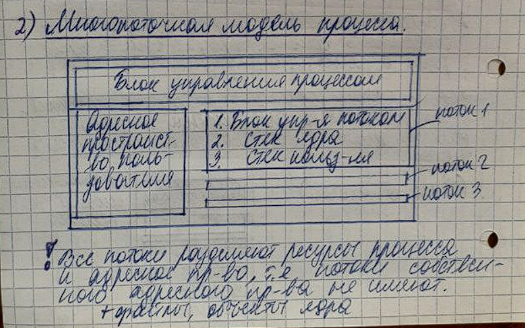 2) Многопоточная модель процесса.
Блок управления процессом
Адресное
пространст-
во, поль-
зователя
1. Блок упр-я потоком
2. Стек ядра
3. Стек польз-ля
поток 1
поток 2
поток 3
! Все потоки разделяют ресурсы процесса
и адресное пр-во, т.е. потоки собствен-
ного адресного пр-ва не имеют.
+ файлы, объекты ядра